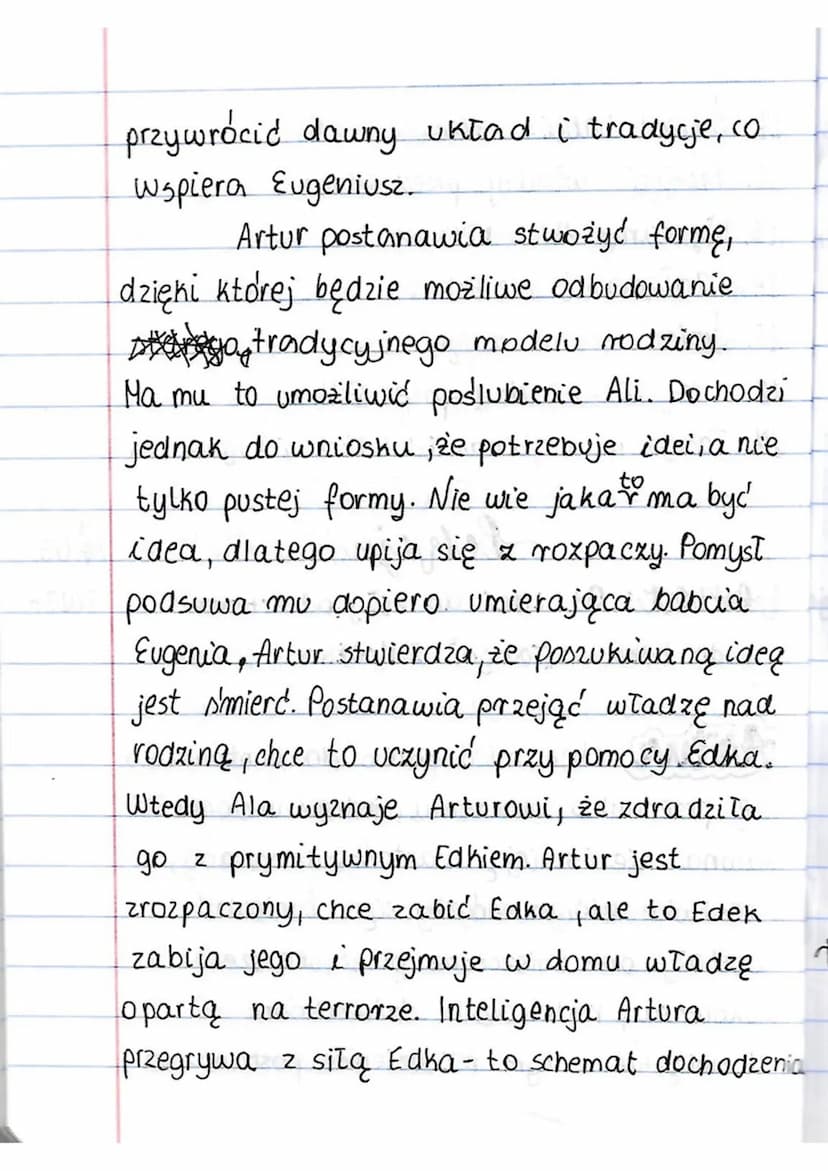 przywrócić dawny układ i tradycje, co
wspiera Eugeniusz.
Artur postanawia stwożyć formę,
dzięki której będzie możliwe odbudowanie
tradycyjnego modelu rodziny.
Ma mu to umożliwić poślubienie Ali. Dochodzi
jednak do wniosku, że potrzebuje idei, a nie
tylko pustej formy. Nie wie jaka to ma być
idea, dlatego upija się z rozpaczy. Pomysł
podsuwa mu dopiero umierająca babcia
Eugenia, Artur stwierdza, że poszukiwaną ideą
jest śmierć. Postanawia przejąć władzę nad
rodziną, chce to uczynić przy pomocy Edka.
Wtedy Ala wyznaje Arturowi, że zdradziła
go z prymitywnym Edkiem. Artur jest
zrozpaczony, chce zabić Edka, ale to Edek
zabija jego i przejmuje w domu władzę
opartą na terrorze. Inteligencja Artura
przegrywa z siłą Edka - to schemat dochodzenia